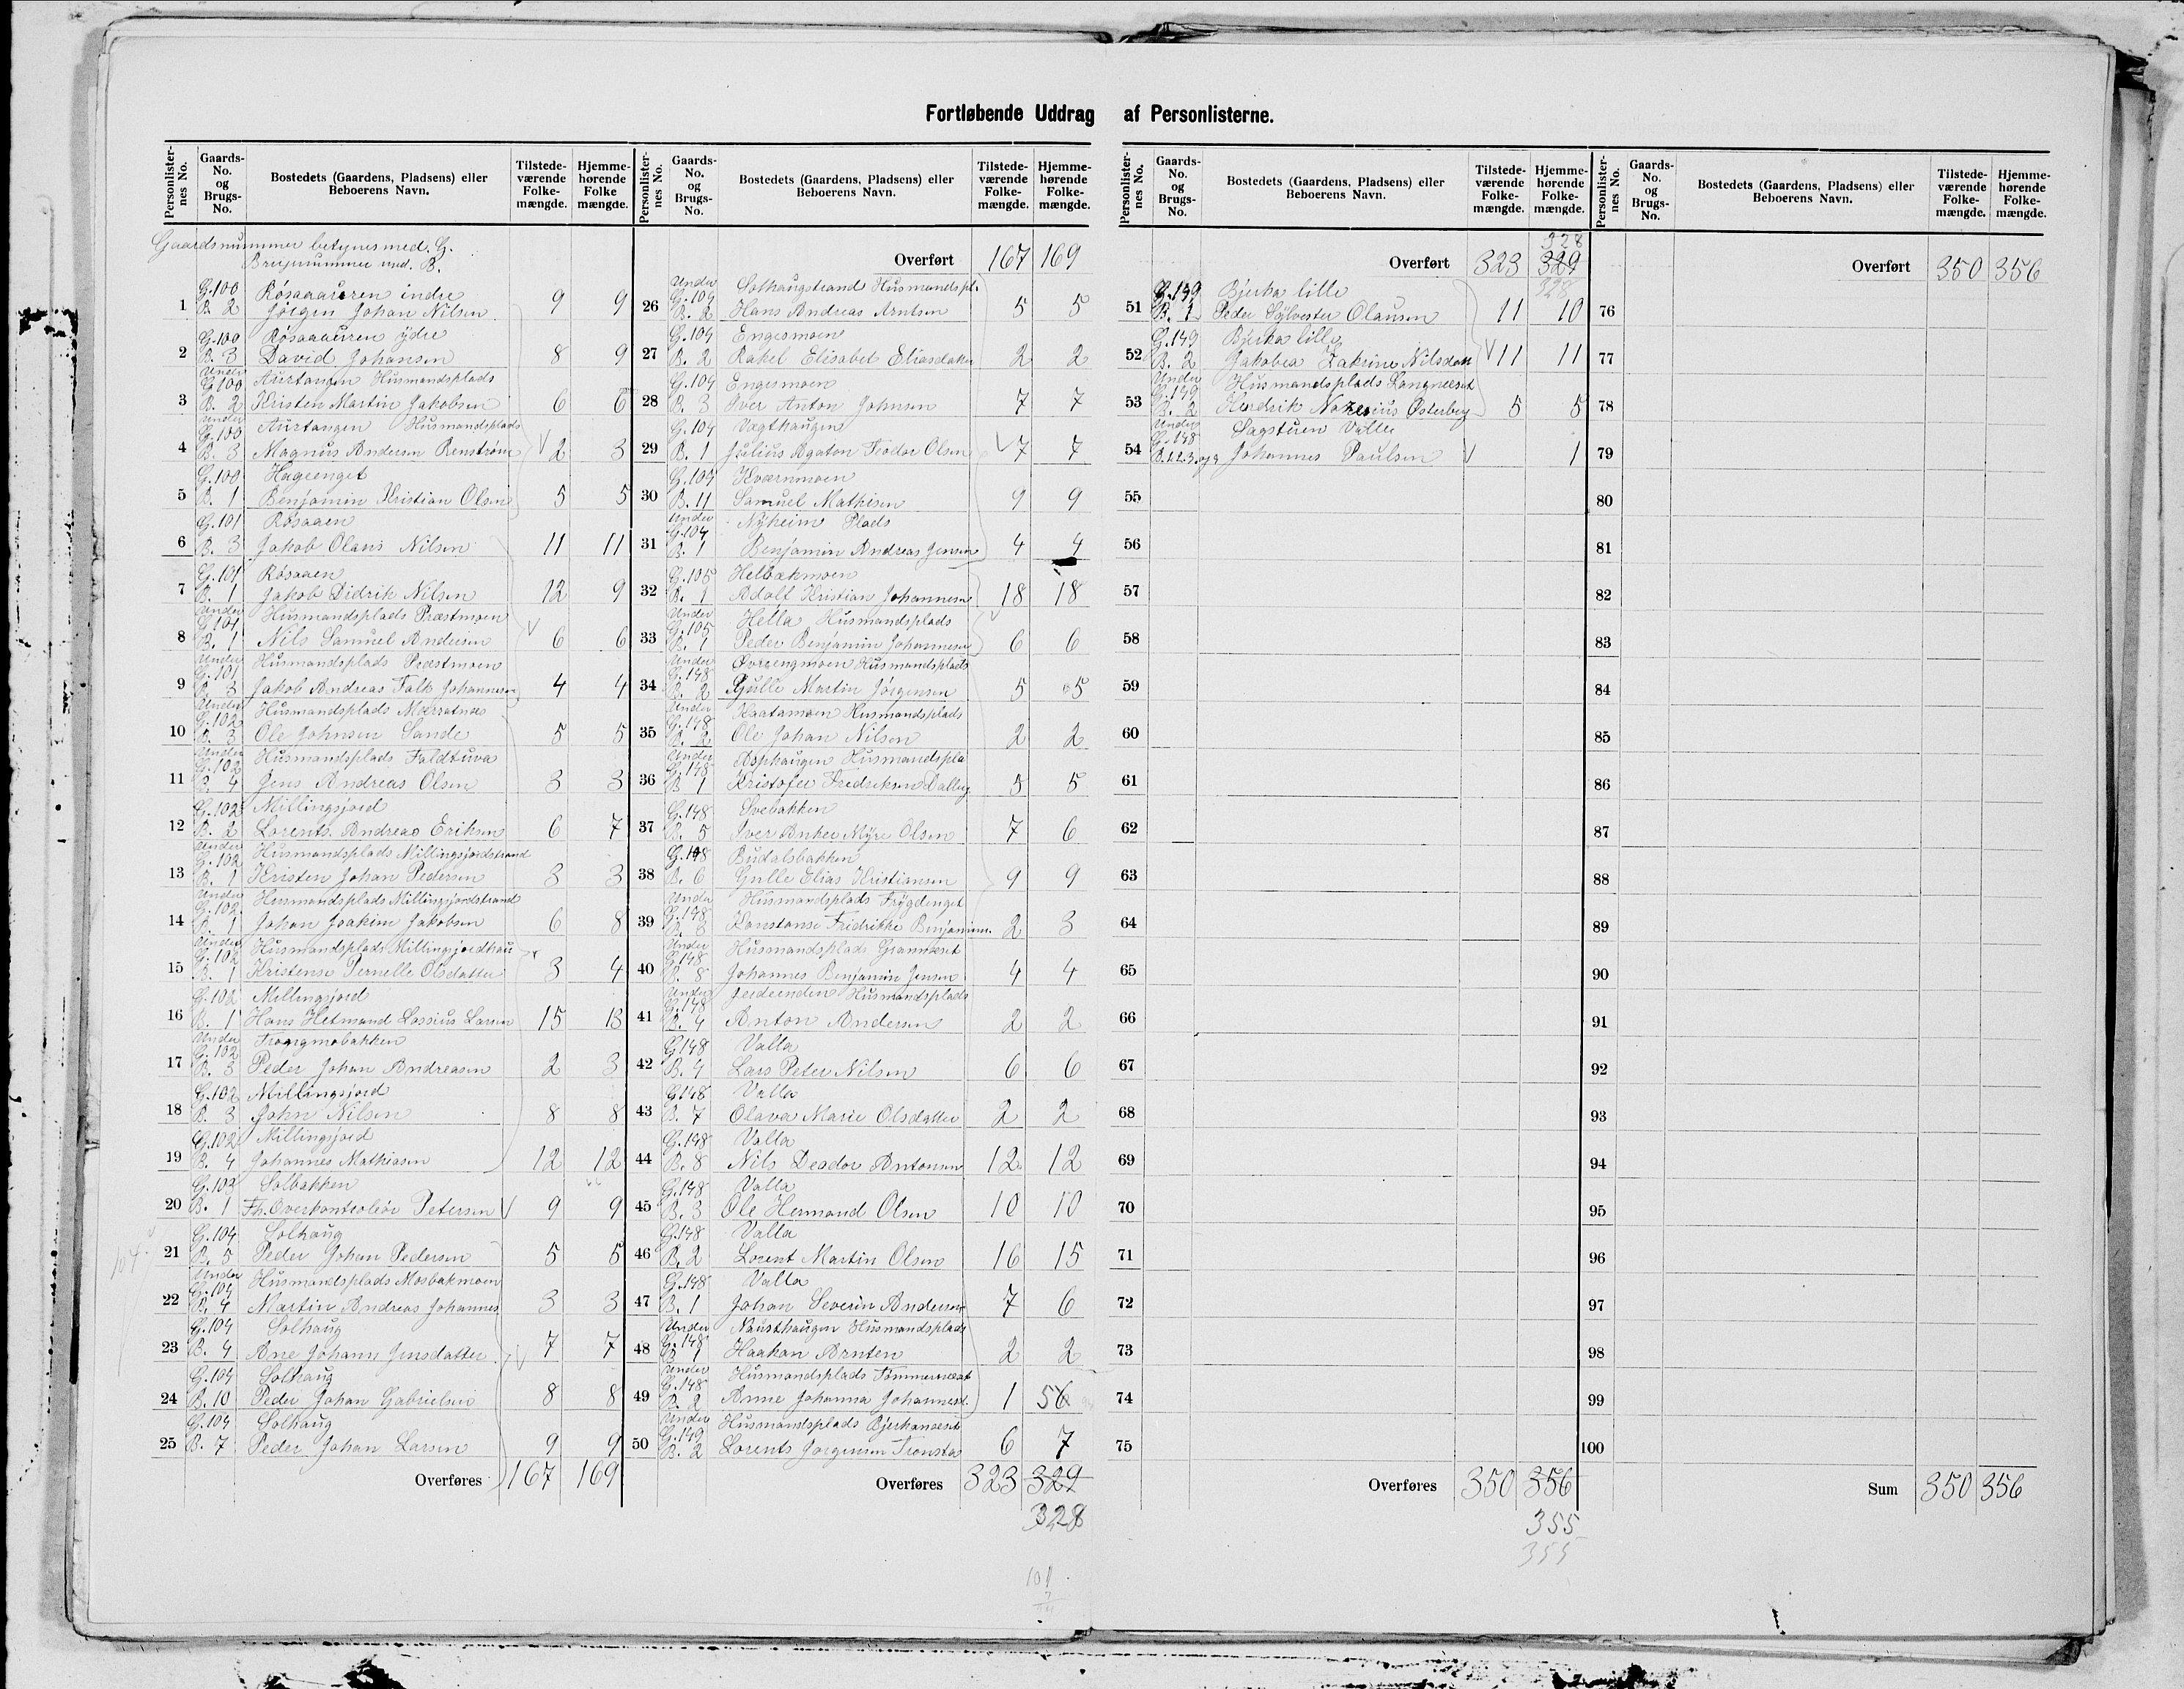 Fortløbende Uddrag af Personlisterne.
Personlister-nes No. Gaards-No. og Brugs-No. Bostedets (Gaardens, Pladsens) eller Beboerens Navn. Tilstede-værende Folke-mængde. Hjemme-hørende Folke mængde.
Gaardsnummer betegnes med G.
Brugsnummer med B.
G.100 Røsaaauren indre
1 B. 2 Jörgen Johan Nilsen 9 9
G.100 Røsaaauren ydre
2 B. 3 David Johansen 8 9
Under G.100 Aurtangen Husmandsplads
3 B. 2 Kristen Martin Jakobsen 6 6
Under G.100 Aurtangen Husmandsplads
4 B. 3 Magnus Andersen Renstrøm V 2 3
G.100 Hageenget
5 B. 1 Benjamin Kristian Olsen 5 5
G.101 Røsaaen
6 B. 3 Jakob Olaus Nilsen 11 11
G.101 Røsaaen
7 B. 1 Jakob Didrik Nilsen 12 9
Under G.101 Husmandsplads Præstmoen
8 B. 1 Nils Samuel Andersen V 6 6
Under G.101 Husmandsplads Præstmoen
9 B. 3 Jakob Andreas Falk Johannesen 4 4
Under G.102 Husmandsplads
10 B. 3 Ole Johnsen Sande 5 5
Under G.102 Husmandsplads Faldtuva
11 B. 4 Jens Andreas Olsen 3 3
G.102 Millingsjord
12 B. 2 Lorents Andreas Eriksen 6 7
Under G.102 Husmandsplads Millingsjordstrand
13 B. 1 Kristen Johan Pedersen 3 3
Under G.102 Husmandsplads Millingsjordstrand
14 B. 1 Johan Joakim Jakobsen 6 8
Under G.102 Husmandsplads Millingsjordhau
15 B. 1 Kristense Pernelle Olsdatter 3 4
G.102 Millingsjord
16 B. 1 Hans Hetmand Lossius Larsen 15 13
Under G.102 Trongmobakken
17 B. 3 Peder Johan Andreasen 2 3
G.102 Millingsjord
18 B. 3 John Nilsen 8 8
G.102 Millingsjord
19 B. 4 Johannes Mathiasen 12 12
G.103 Solbakken
20 B. 1 Fh. Overkontrolör Petersen V 9 9
G.104 Solhaug
21 B. 5 Peder Johan Pedersen 5 5
Under G.104 Husmandsplads Mosbakmoen
22 B. 4 Martin Andreas Johannes 3 3
G.104 Solhaug
23 B. 4 Ane Johanne Jensdatter V 7 7
G.104 Solhaug
24 B. 10 Peder Johan Gabrielsen 8 8
G.104 Solhaug
25 B. 7 Peder Johan Larsen 9 9
Overføres 167 169
Personlister-nes No. Gaards-No. og Brugs-No. Bostedets (Gaardens, Pladsens) eller Beboerens Navn. Tilstede-værende Folke-mængde. Hjemme-hørende Folke-mængde.
Overført 167 169
Under G.104 Solhaugstrand Husmandspl.
26 B. 2 Hans Andreas Arntsen 5 5
G.104 Engesmoen
27 B. 2 Rakel Elisabet Eliasdatter 2 2
G.104 Engesmoen
28 B. 3 Iver Anton Johnsen 7 7
G.104 Vagthaugen
29 B. 1 Julius Agaton Teodor Olsen V 7 7
G.104 Kværnmoen
30 B. 11 Samuel Mathisen 9 9
Under G.104 Nyheim Plads
31 B. 1 Benjamin Andreas Jensen 4 4
G.105 Helbakmoen
32 B. 1 Adolf Kristian Johannesen 18 18
Under G.105 Hella Husmandsplads
33 B. 1 Peder Benjamin Johannesen 6 6
Under G.148 Øvrengmoen Husmandsplads
34 B. 2 Gjulle Martin Jörgensen 5 5
Under G.148 Kaatamoen Husmandsplads
35 B. 2 Ole Johan Nilsen 2 2
Under G.148 Asphaugen Husmandspla
36 B 1 Kristofer Fredriksen Dalberg 5 5
G.148 Svebakken
37 B. 5 Iver Anker Myre Olsen 7 6
G.148 Budalsbakken
38 B. 6 Gulle Elias Kristiansen 9 9
Under G.148 Husmandsplads Trygdenget
39 B. 3 Konstanse Fredrikke Benjamins. 2 3
Under G.148 Husmandsplads Granneset
40 B. 8 Johannes Benjamin Jensen 4 4
Under G.148 Husmandsplads
41 B. 4 Anton Andersen 2 2
G.148 Valla
42 B. 4 Lars Peter Nilsen 6 6
G.148 Valla
43 B. 7 Olava Marie Olsdatter 2 2
G.148 Valla
44 B. 8 Nils Deador Antonsen 12 12
G.148 Valla
45 B. 3 Ole Hermand Olsen 10 10
G.148 Valla
46 B. 2 Lorent Martin Olsen 16 15
G.148 Valla
47 B. 1 Johan Severin Andersen 7 6
Under G.148 Nausthaugen Husmandsplads
48 B 1 Haakon Arntsen 2 2
Under G.148 Husmandsplads Tømmernæset
49 B. 2 Anne Johanna Johannesd. 1 56
Under G.149 Husmandsplads Bjerkaneset
50 B. 2 Lorents Jorgensen Tronstad 6 7
Overføres 323 329
328
Personlister-nes No. Gaards-No. og Brugs-No. Bostedets (Gaardens, Pladsens) eller Beboerens Navn. Tilstede-værende Folke-mængde. Hjemme-hørende Folke-mængde.
328
Overført 323 329
328
G.149 Bjerka lille
51 B. 1 Peder Sylvester Olausen 11 10
G.149 Bjerka lille
52 B. 2 Jakobea Katrine Nilsdatt V 11 11
Under G.149 Husmandsplads Langneset
53 B. 2 Hendrik Østerberg 5 5
Under G.148 Valla
54 B.1.2.3.og 4 Johannes Paulsen V 1
55
56
57
58
59
60
61
62
63
64
65
66
67
68
69
70
71
72
73
74
75
Overføres 350 356
355
355
Personlister-nes No. Gaards-No. og Brugs-No. Bostedets (Gaardens, Pladsens) eller Beboerens Navn. Tilstede-værende Folke-mængde. Hjemme-hørende Folke-mængde.
Overført 350 356
76
77
78
79
80
81
82
83
84
85
86
87
88
89
90
91
92
93
94
95
96
97
98
99
100
Sum 350 356